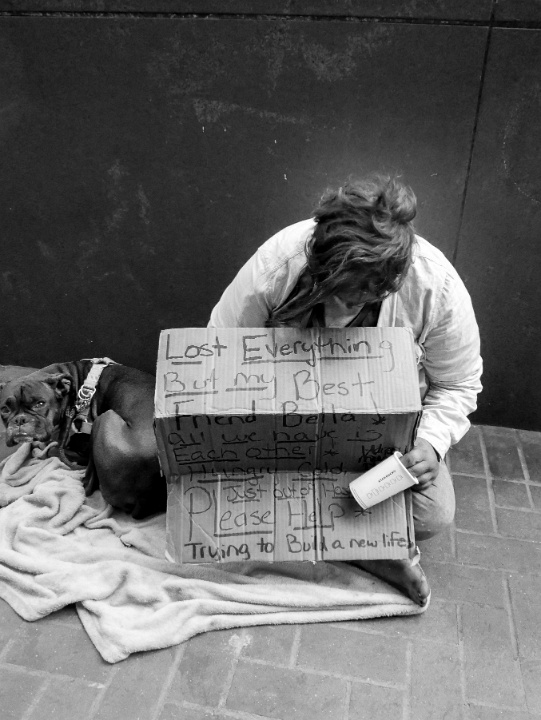 Lost Everything
But my Best
Friend Bella!
all we have is
Each other *
Hungry Cold,
Just out of
Please HELP *
Trying to Build a new life